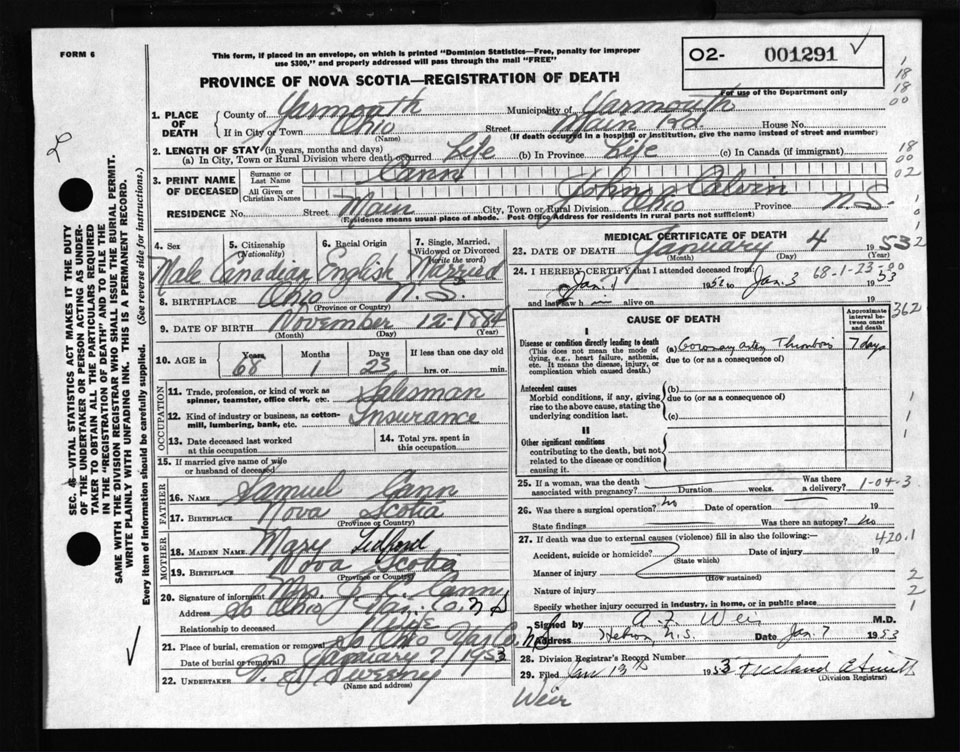 FORM 6
This form, if placed in an envelope, on which is printed "Dominion Statistics—Free, penalty for improper
use $300," and properly addressed will pass through the mail "FREE"
O2- 001291 ✓
PROVINCE OF NOVA SCOTIA—REGISTRATION OF DEATH
For use of the Department only
1. PLACE OF DEATH
County of Yarmouth Municipality of Yarmouth
If in City or Town Ohio Street Main Rd. House No.
(Name) (If death occurred in a hospital or institution, give the name instead of street and number)
2. LENGTH OF STAY (in years, months and days)
(a) In City, Town or Rural Division where death occurred Life (b) In Province Life (c) In Canada (if immigrant)
3. PRINT NAME OF DECEASED
Surname or Last Name Cann
All Given or Christian Names John Calvin
RESIDENCE No. Street Main City, Town or Rural Division Ohio Province N.S.
(Residence means usual place of abode. Post Office Address for residents in rural parts not sufficient)
4. Sex 5. Citizenship (Nationality) 6. Racial Origin 7. Single, Married, Widowed or Divorced (Write the word)
Male Canadian English Married
8. BIRTHPLACE Ohio N.S.
(Province or Country)
9. DATE OF BIRTH November 12-1884
(Month) (Day) (Year)
10. AGE in Years Months Days If less than one day old
68 1 23 hrs. or min.
OCCUPATION
11. Trade, profession, or kind of work as spinner, teamster, office clerk, etc. Salesman
12. Kind of industry or business, as cotton-mill, lumbering, bank, etc. Insurance
13. Date deceased last worked at this occupation
14. Total yrs. spent in this occupation
15. If married give name of wife or husband of deceased
FATHER
16. NAME Samuel Cann
17. BIRTHPLACE Nova Scotia
(Province or Country)
MOTHER
18. MAIDEN NAME Mary Tedford
19. BIRTHPLACE Nova Scotia
(Province or Country)
20. Signature of informant Mrs. J. C. Cann
Address So Ohio Yar. Co. N S
Relationship to deceased Wife
21. Place of burial, cremation or removal So Ohio Yar Co. N.S.
Date of burial or removal January 7/1953
22. UNDERTAKER Sweeney
(Name and address)
MEDICAL CERTIFICATE OF DEATH
23. DATE OF DEATH January 4 1953
(Month) (Day) (Year)
24. I HEREBY CERTIFY that I attended deceased from:
Jan. 1 1952 to Jan. 3 1953
68-1-23
and last saw h im alive on 19
CAUSE OF DEATH
Approximate interval between onset and death
I
Disease or condition directly leading to death
(This does not mean the mode of dying, e.g., heart failure, asthenia, etc. It means the disease, injury, or complication which caused death.)
(a) Coronary artery Thrombosis 7 days
due to (or as a consequence of)
Antecedent causes
Morbid conditions, if any, giving rise to the above cause, stating the underlying condition last.
(b)
due to (or as a consequence of)
(c)
II
Other significant conditions
contributing to the death, but not related to the disease or condition causing it.
25. If a woman, was the death associated with pregnancy? Duration weeks. Was there a delivery?
1-04-3
26. Was there a surgical operation? No Date of operation 19
State findings Was there an autopsy? No
27. If death was due to external causes (violence) fill in also the following:—
420.1
Accident, suicide or homicide? Date of injury 19
(State which)
Manner of injury
(How sustained)
Nature of injury
Specify whether injury occurred in industry, in home, or in public place
Signed by A. F. Weir M.D.
Address Hebron, N.S. Date Jan. 7 1953
28. Division Registrar's Record Number
29. Filed Jan 13th 1953 Freeland A Smith
(Division Registrar)
Weir
SEC. 4 VITAL STATISTICS ACT MAKES IT THE DUTY
OF THE UNDERTAKER OR PERSON ACTING AS UNDER-
TAKER TO OBTAIN ALL THE PARTICULARS REQUIRED
IN THE "REGISTRATION OF DEATH" AND TO FILE THE
SAME WITH THE DIVISION REGISTRAR WHO SHALL ISSUE THE BURIAL PERMIT.
WRITE PLAINLY WITH UNFADING INK. THIS IS A PERMANENT RECORD.
Every item of information should be carefully supplied. (See reverse side for instructions.)
1
18
18
00
18
00
02
1
01
2
00
362
1
1
1
2
2
1